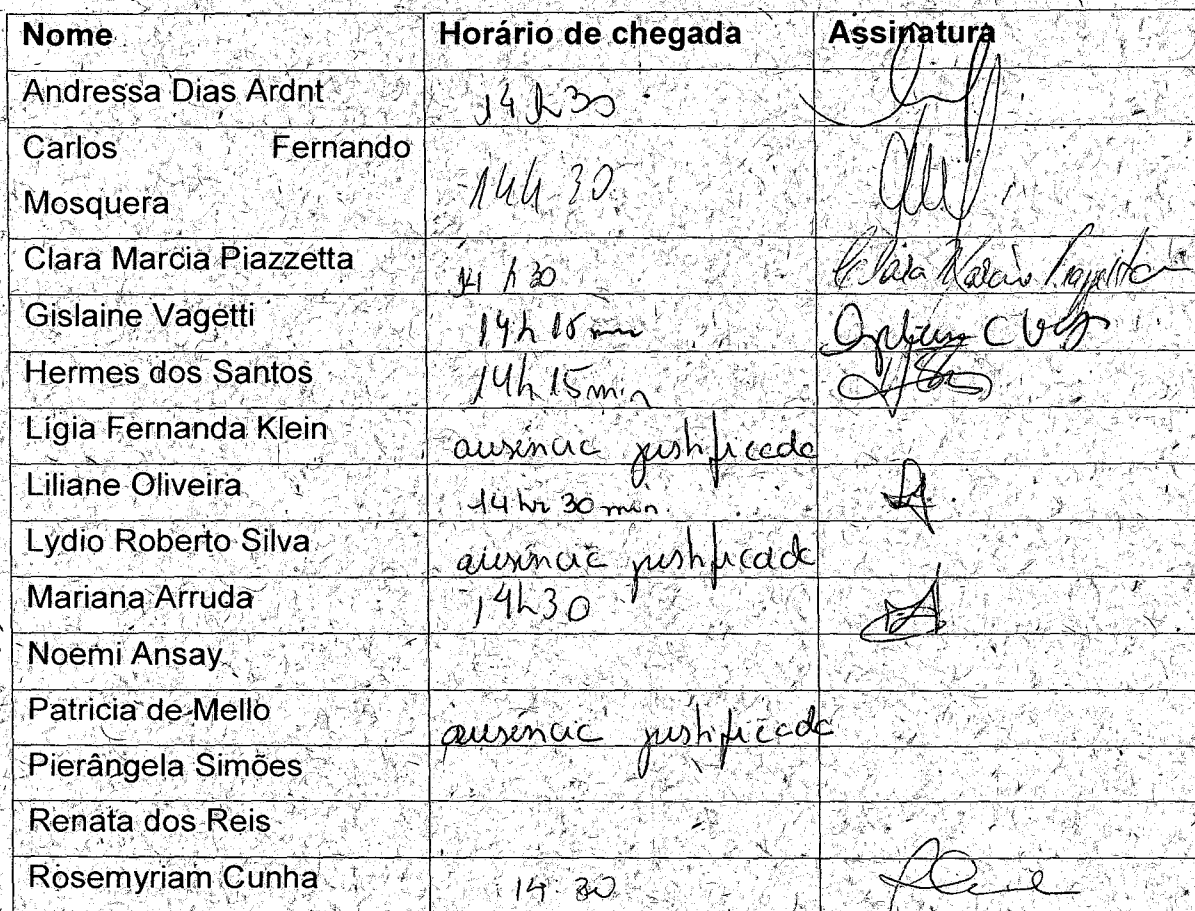 Nome Horário de chegada Assinatura
Andressa Dias Ardnt 14h30
Carlos Fernando
Mosquera 14h30
Clara Marcia Piazzetta 14h30 Clara Marcia Piazzetta
Gislaine Vagetti 14h15min
Hermes dos Santos 14h15min
Lígia Fernanda Klein ausência justificada
Liliane Oliveira 14hr30min.
Lydio Roberto Silva ausência justificada
Mariana Arruda 14h30
Noemi Ansay
Patricia de Mello ausência justificada
Pierângela Simões
Renata dos Reis
Rosemyriam Cunha 14 30